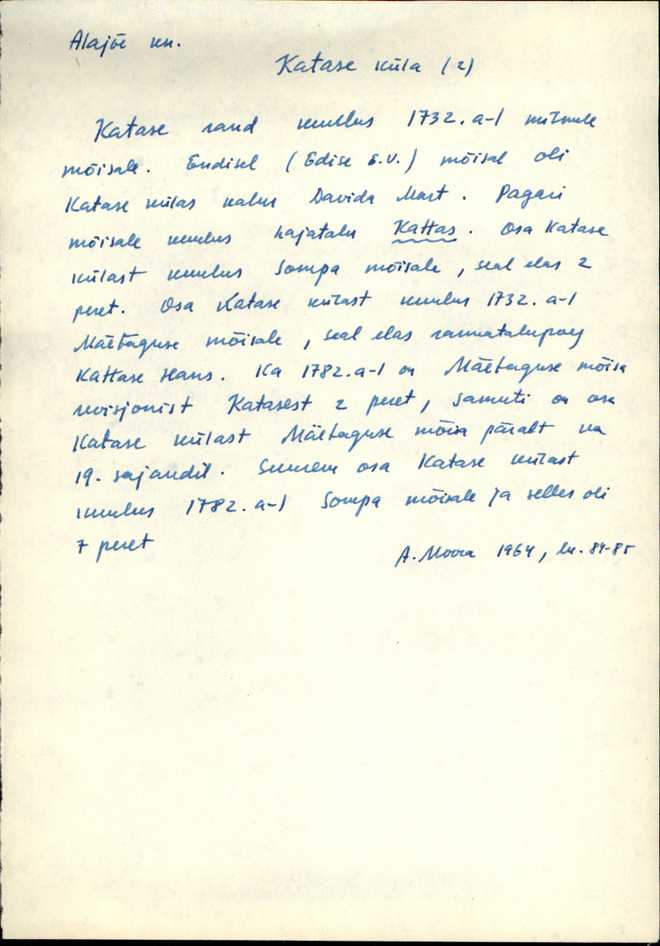 Alajõe kn.
Katase küla (2)
Katase rand kuulus 1732. a-l mitmele
mõisale. Endisel (Edise E.V.) mõisal oli
Katase külas kalur Davida Mart. Pagari
mõisale kuulus hajatalu Kattas. Osa Katase
külast kuulus Sompa mõisale, seal elas 2
peret. Osa Katase külast kuulus 1732. a-l
Mäetaguse mõisale, seal elas rannatalupoeg
Kattase Hans. Ka 1782. a-l on Mäetaguse mõisa
revisjonist Katasest 2 peret, samuti on osa
Katase külast Mäetaguse mõisa päralt ka
19. sajandil. Suurem osa Katase külast
kuulus 1782. a-l Sompa mõisale ja selles oli
7 peret
A. Moora 1964, lk. 84-85